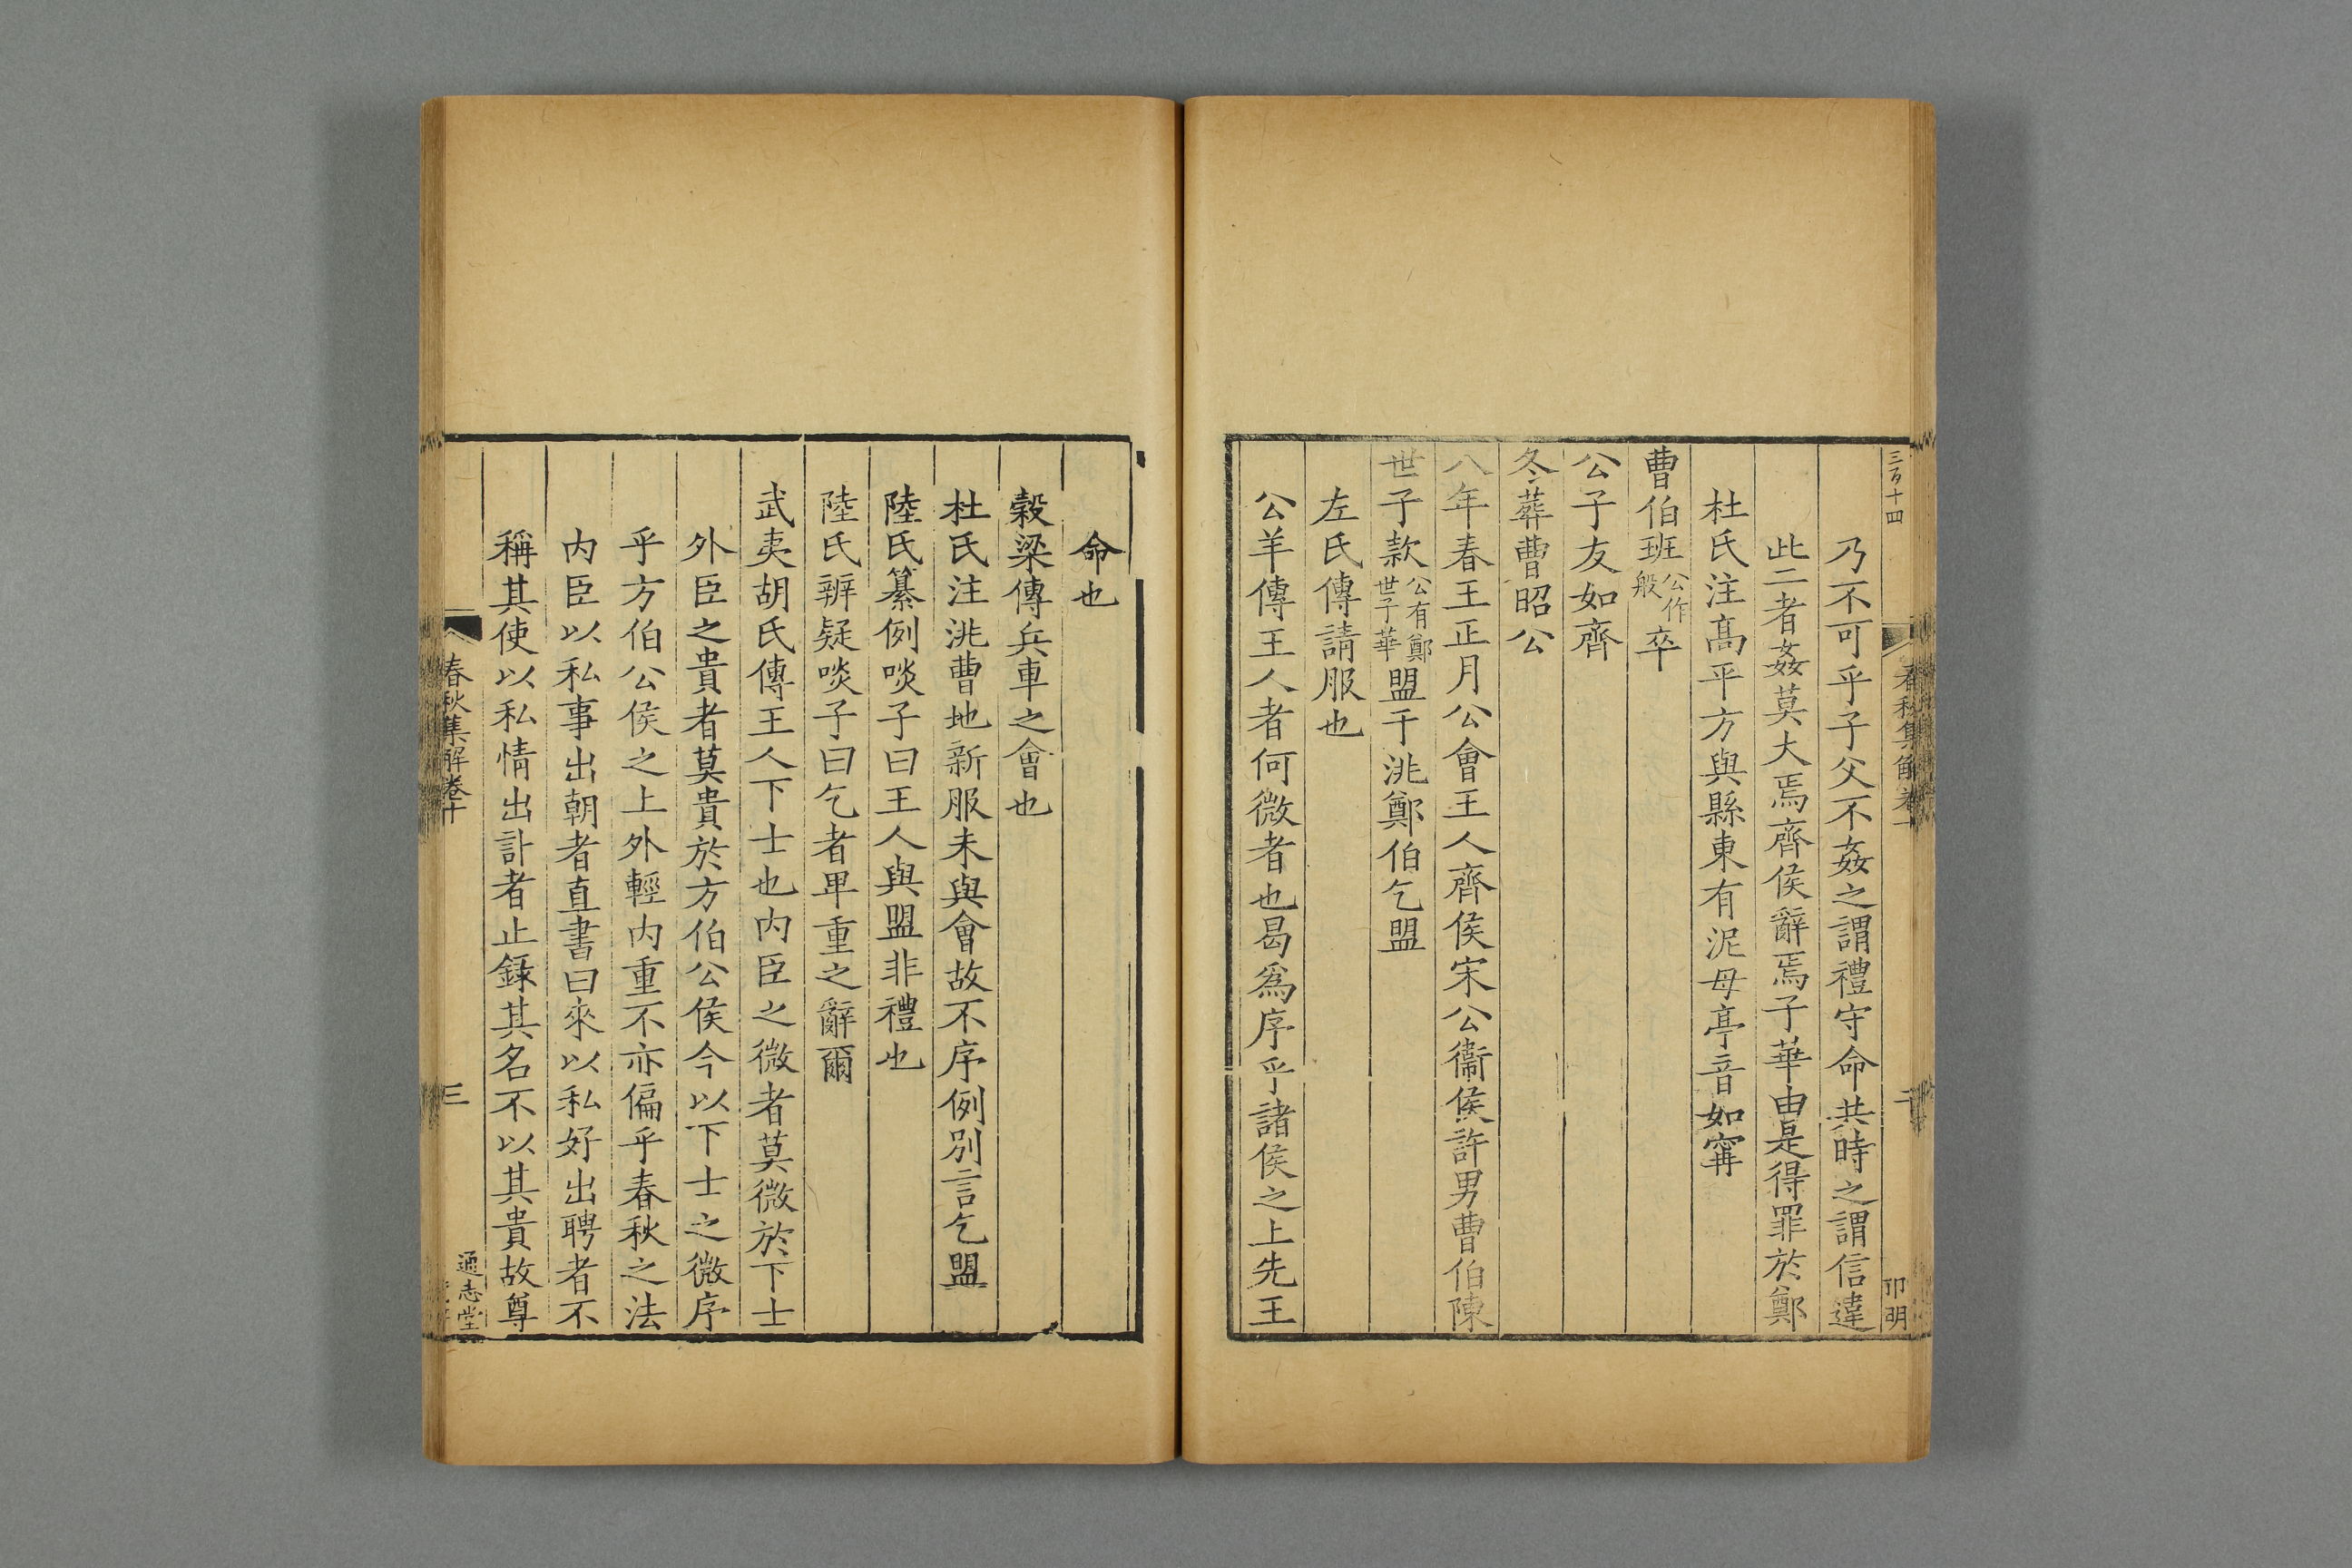 三百十四
春秋集解卷十
二
卭明
乃不可乎子父不姦之謂禮守命共時之謂信違
此二者姦莫大焉齊侯辭焉子華由是得罪於鄭
杜氏注高平方與縣東有泥母亭音如甯
曹伯班公作般卒
公子友如齊
冬葬曹昭公
八年春王正月公會王人齊侯宋公衞侯許男曹伯陳
世子款公有鄭世子華盟于洮鄭伯乞盟
左氏傳請服也
公羊傳王人者何微者也曷爲序乎諸侯之上先王
命也
榖梁傳兵車之會也
杜氏注洮曹地新服未與會故不序例別言乞盟
陸氏纂例啖子曰王人與盟非禮也
陸氏辨疑啖子曰乞者卑重之辭爾
武夷胡氏傳王人下士也内臣之微者莫微於下士
外臣之貴者莫貴於方伯公侯今以下士之微序
乎方伯公侯之上外輕内重不亦偏乎春秋之法
内臣以私事出朝者直書曰來以私好出聘者不
稱其使以私情出訃者止録其名不以其貴故尊
春秋集解卷十
三
通志堂